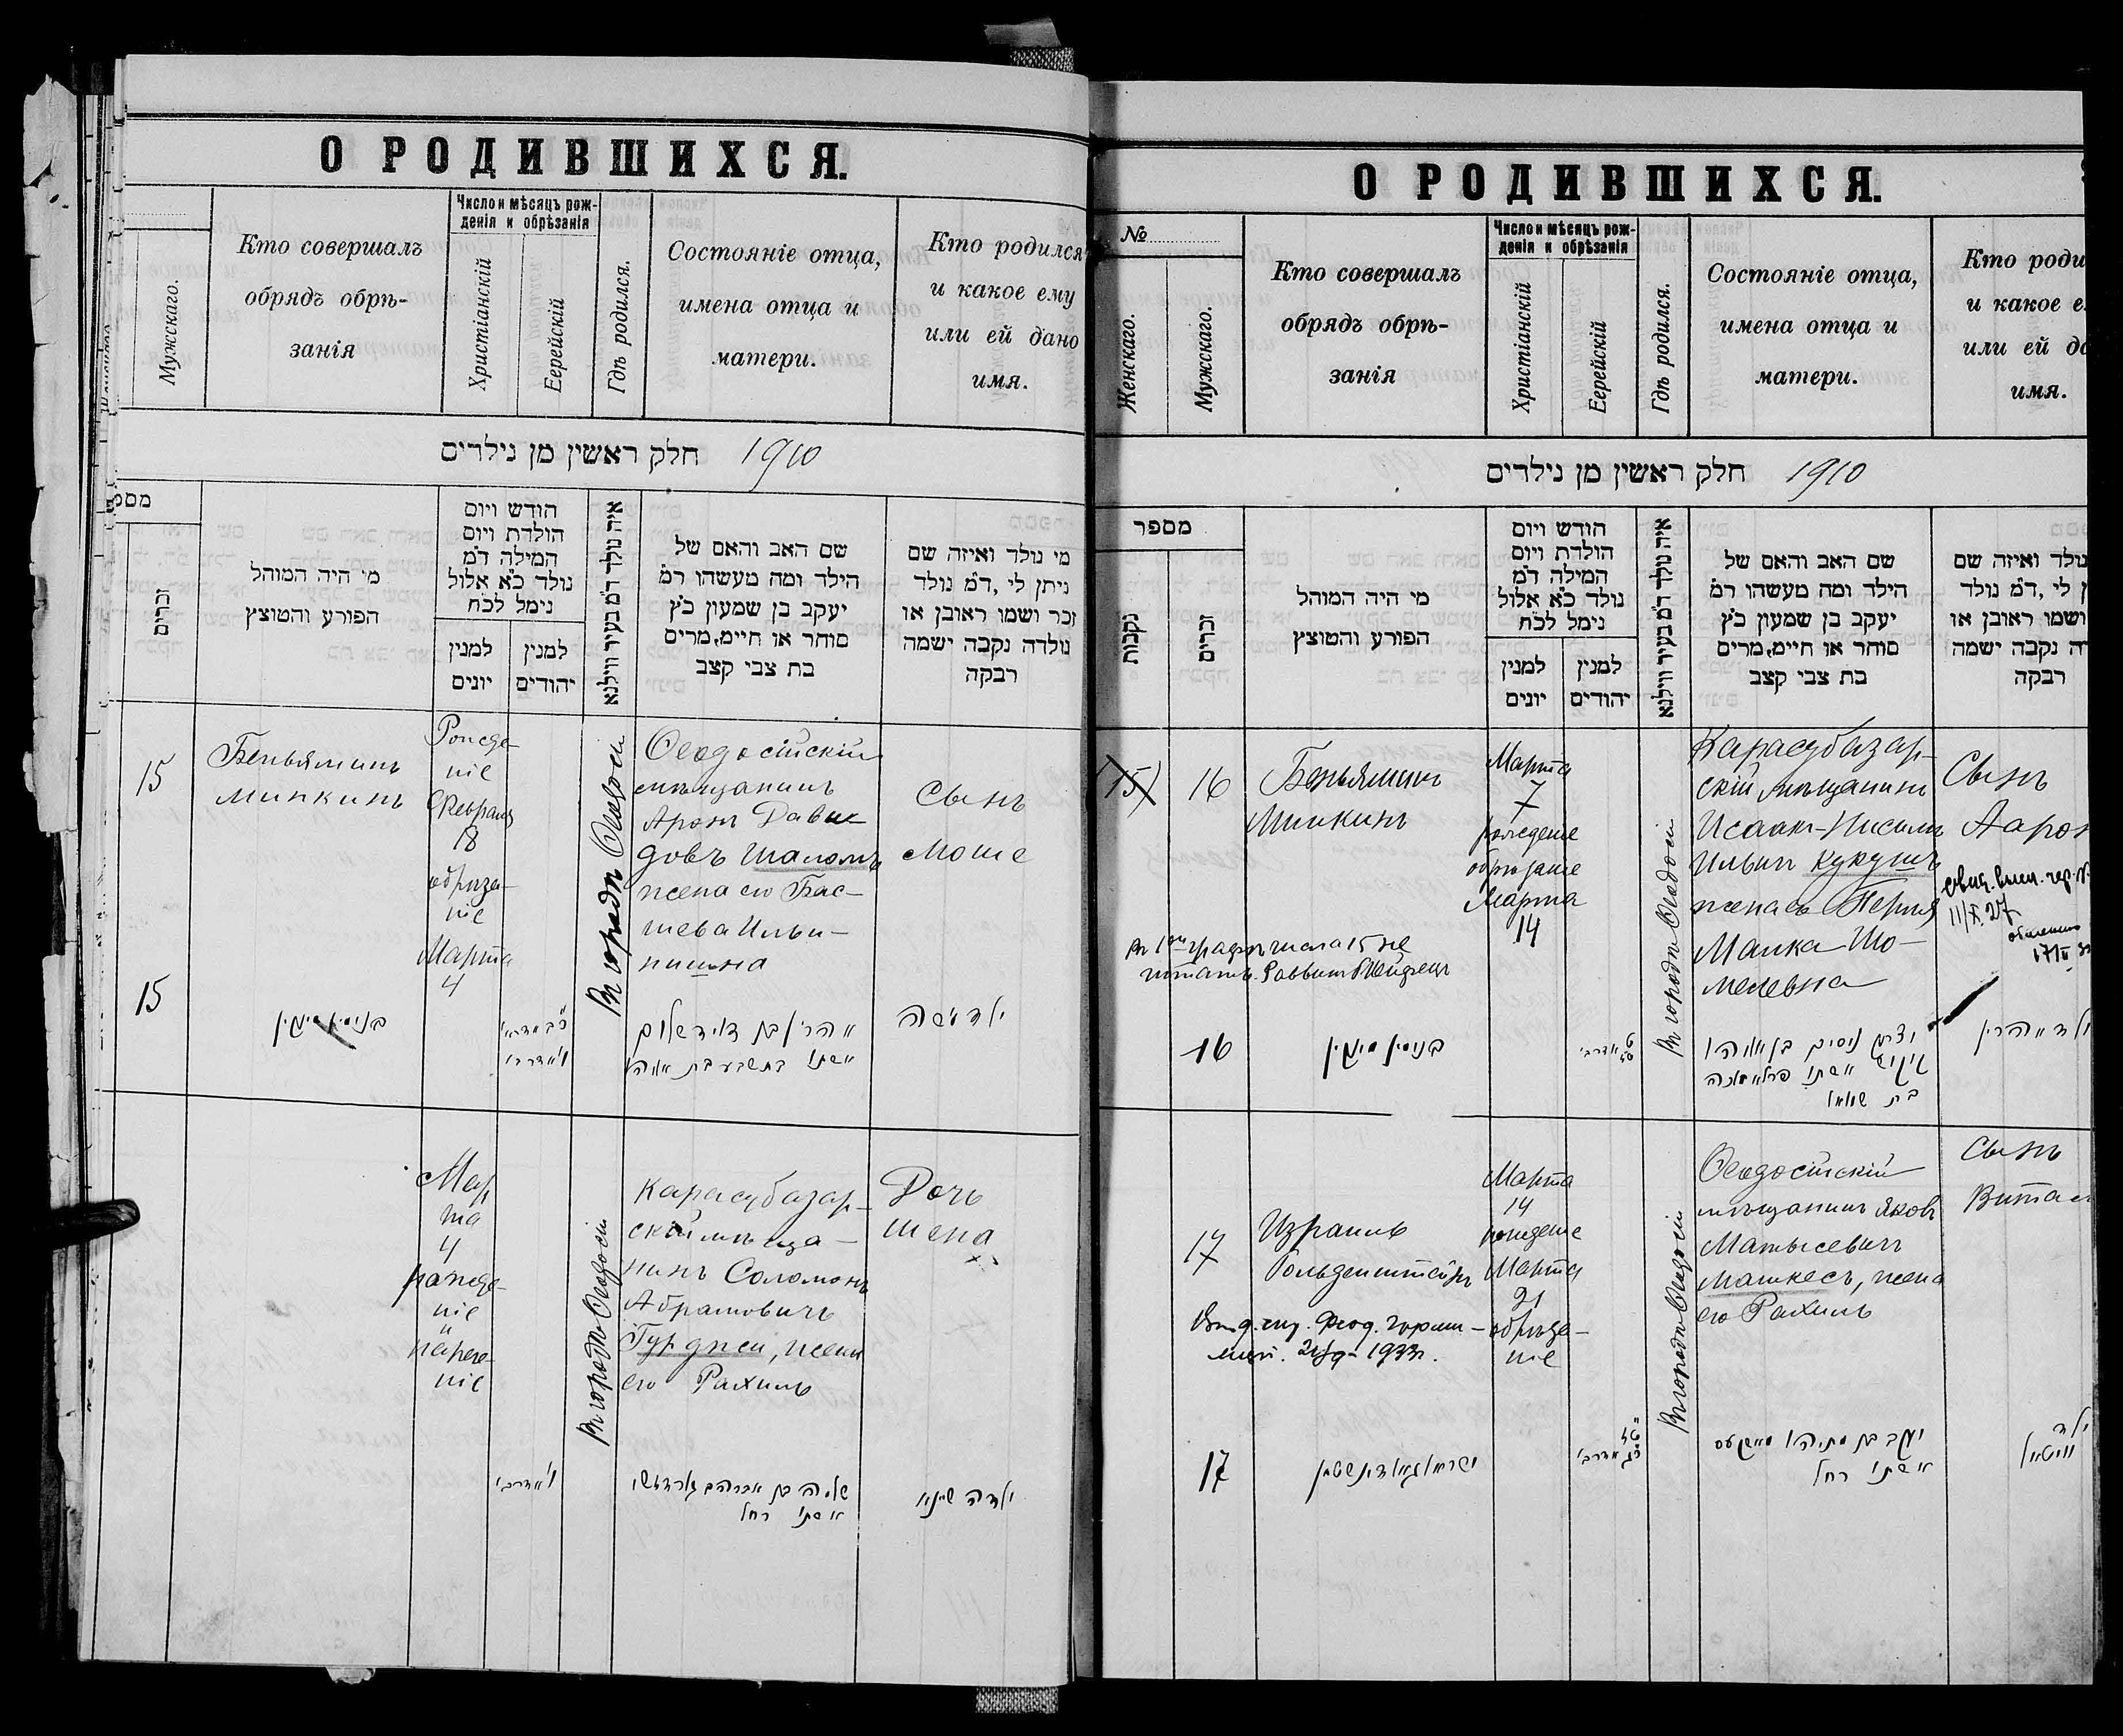 О РОДИВШИХСЯ.
Мужскаго.
Кто совершалъ
обрядъ обрѣ-
занія
Число и мѣсяцъ рож-
денія и обрѣзанія
Христіанскій
Еерейскій
Гдѣ родился.
Состояніе отца,
имена отца и
матери.
Кто родился
и какое ему
или ей дано
имя.
חלק ראשין מן נילדים 1910
זכרים
מי היה המוהל
הפורע והטוצץ
חודש ויום
הולדת ויום
המילה ד״מ
נולד כ״א אלול
נימל לכ״ח
למנין
יונים
למנין
יהודים
איה נולד ד״מ בעיר ווילנא
שם האב והאם של
הילד ומה מעשהו ר״מ
יעקב בן שמעון כ״ץ
סוחר או חיים, מרים
בת צבי קצב
מי נולד ואיזה שם
ניתן לי, ד״מ נולד
זכר ושמו ראובן או
נולדה נקבה ישמה
רבקה
15
Беньяминъ
Минкинъ
Рожде-
ніе
Февраля
18
обрѣза-
ніе
Марта
4
Въ городѣ Ѳеодосіи
Ѳеодосійскій
мѣщанинъ
Аронъ Дави-
довъ Шаломъ
жена его Бас-
шева Ильи-
нишна
Сынъ
Моше
15
בנימין מינקין
אהרן בן דויד שלום
אשתו בתשבע בת אליהו
ילד משה
Мар
та
4
рожде-
ніе
и
нарече-
ніе
Въ городѣ Ѳеодосіи
Карасубазар-
скій мѣща-
нинъ Соломонъ
Абрамовичъ
Гурджи, жена
его Рахиль
Дочь
Шена
שלמה בן אברהם גורדזשי
אשתו רחל
ילדה שיינא
О РОДИВШИХСЯ.
№
Женскаго.
Мужскаго.
Кто совершалъ
обрядъ обрѣ-
занія
Число и мѣсяцъ рож-
денія и обрѣзанія
Христіанскій
Еерейскій
Гдѣ родился.
Состояніе отца,
имена отца и
матери.
Кто роди
и какое е
или ей да
имя.
חלק ראשין מן נילדים 1910
מספר
נקבות
זכרים
מי היה המוהל
הפורע והטוצץ
חודש ויום
הולדת ויום
המילה ד״מ
נולד כ״א אלול
נימל לכ״ח
למנין
יונים
למנין
יהודים
איה נולד ד״מ בעיר ווילנא
שם האב והאם של
הילד ומה מעשהו ר״מ
יעקב בן שמעון כ״ץ
סוחר או חיים, מרים
בת צבי קצב
נולד ואיזה שם
ן לי, ד״מ נולד
ושמו ראובן או
דה נקבה ישמה
רבקה
15
16
Беньяминъ
Минкинъ
Марта
7
рожденіе
обрѣзаніе
Марта
14
Въ городѣ Ѳеодосіи
Карасубазар-
скій мѣщанинъ
Исаакъ-Нисимъ
Ильичъ Кукушъ
жена его Перля
Малка Шо-
мелевна
Сынъ
Аарон
11/X 27
Въ 1ой графѣ числа 15 не
читать. Раввинъ
16
בנימין מינקין
יצחק ניסים בן אליהו
קוקוש אשתו פרלא מלכה
בת שמואל
ילד אהרן
17
Израиль
Гольденштейнъ
Марта
14
рожденіе
Марта
21
обрѣза-
ніе
Въ городѣ Ѳеодосіи
Ѳеодосійскій
мѣщанинъ Яковъ
Матысевичъ
Машкесъ, жена
его Рахиль
Сынъ
Витал
1933г.
17
ישראל גאלדענשטיין
יעקב בן מתיהו מאשקעס
אשתו רחל
ילד
וויטאל